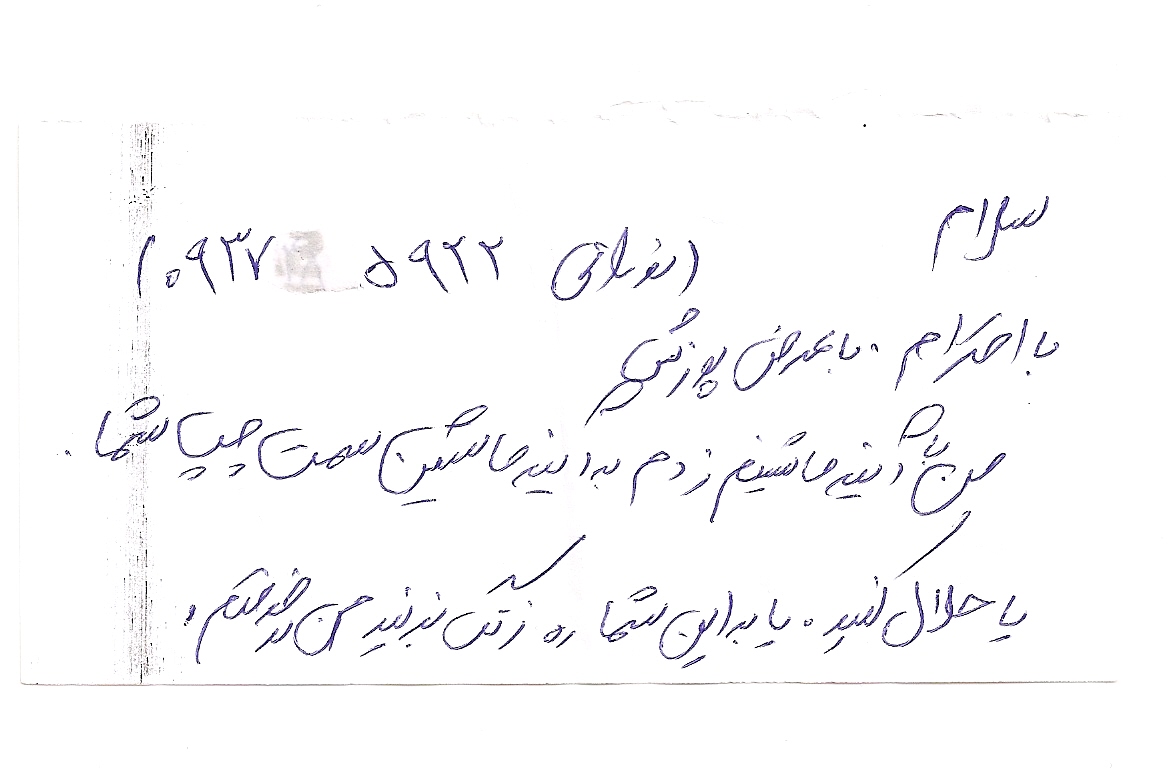 سلام
( ۰۹۳۷ ۵۹۲۲ )
با احترام . با عرض پوزش
من با آئینه ماشینم زدم به آئینه ماشین سمت چپ شما .
یا حلال کنید . یا به این شماره زنگ بزنید من در خدمتم .